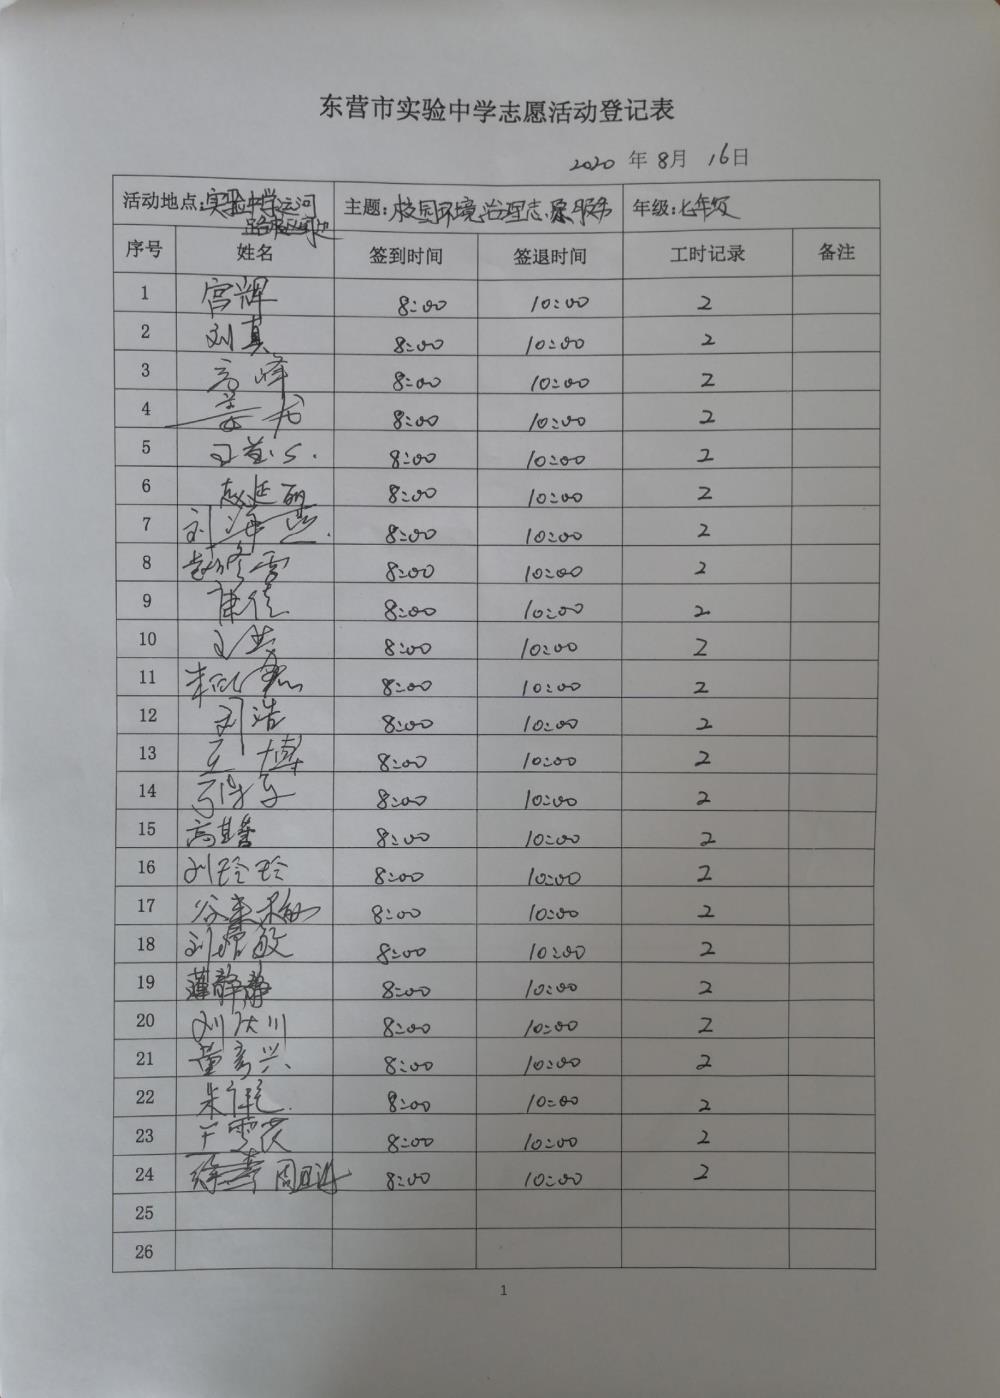 东营市实验中学志愿活动登记表
2020 年 8月 16日
活动地点:实验中学运河 主题:校园环境治理志愿服务 年级:七年级
序号 姓名 签到时间 签退时间 工时记录 备注
1 宫辉 8:00 10:00 2
2 刘真 8:00 10:00 2
3 高峰 8:00 10:00 2
4 8:00 10:00 2
5 8:00 10:00 2
6 赵延丽 8:00 10:00 2
7 刘海燕 8:00 10:00 2
8 8:00 10:00 2
9 8:00 10:00 2
10 8:00 10:00 2
11 8:00 10:00 2
12 刘浩 8:00 10:00 2
13 王博 8:00 10:00 2
14 8:00 10:00 2
15 8:00 10:00 2
16 刘玲玲 8:00 10:00 2
17 8:00 10:00 2
18 刘增敏 8:00 10:00 2
19 薄静静 8:00 10:00 2
20 8:00 10:00 2
21 8:00 10:00 2
22 8:00 10:00 2
23 8:00 10:00 2
24 8:00 10:00 2
25
26
1